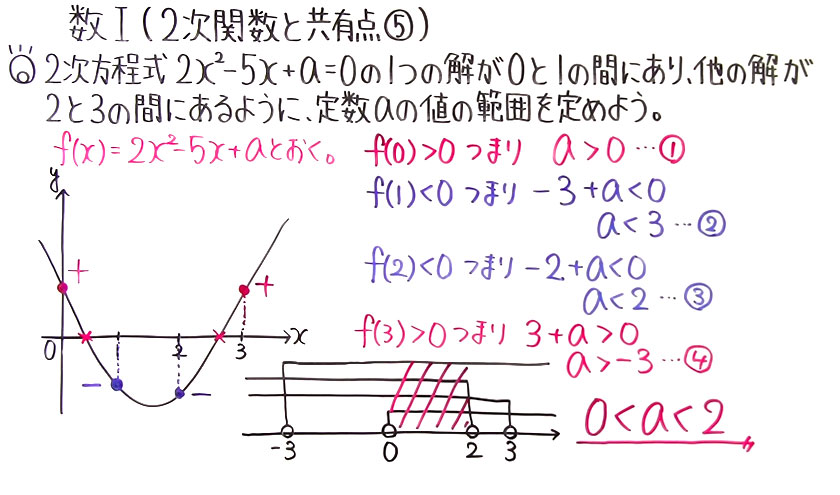 数I(2次関数と共有点⑤)
2次方程式 2x²-5x+a=0の1つの解が0と1の間にあり、他の解が
2と3の間にあるように、定数aの値の範囲を定めよう。
f(x)=2x²-5x+aとおく。
f(0)>0 つまり a>0…①
f(1)<0 つまり -3+a<0
a<3…②
f(2)<0 つまり -2+a<0
a<2…③
f(3)>0つまり 3+a>0
a>-3…④
y
+
+
0 1 2 3 x
- -
-3 0 2 3
0<a<2